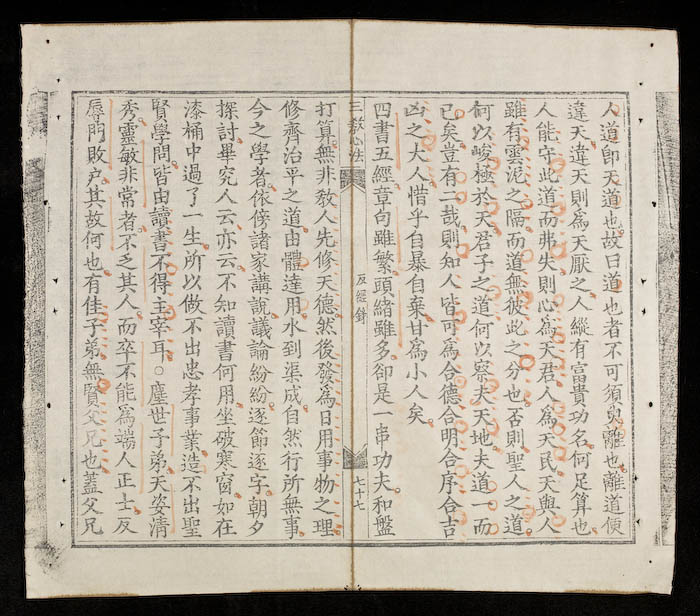 人道即天道也故曰道也者不可須臾離也離道便
違天違天則爲天厭之人縱有富貴功名何足算也
人能守此道而弗失則心爲天君人爲天民天與人
雖有雲泥之隔而道無彼此之分也否則聖人之道
何以峻極於天君子之道何以察夫天地夫道一而
已矣豈有二哉則知人皆可爲合德合明合序合吉
凶之大人惜乎自暴自棄甘爲小人矣
四書五經章句雖繁頭緒雖多卻是一串功夫和盤
三教心法 反經錄 七十七
打算無非教人先修天德然後發爲日用事物之理
修齊治平之道由體達用水到渠成自然行所無事
今之學者依傍諸家講說議論紛紛逐節逐字朝夕
探討畢究人云亦云不知讀書何用坐破寒窗如在
漆桶中過了一生所以做不出忠孝事業造不出聖
賢學問皆由讀書不得主宰耳○塵世子弟天姿清
秀靈敏非常者不乏其人而卒不能爲端人正士反
辱門敗户其故何也有佳子弟無賢父兄也蓋父兄